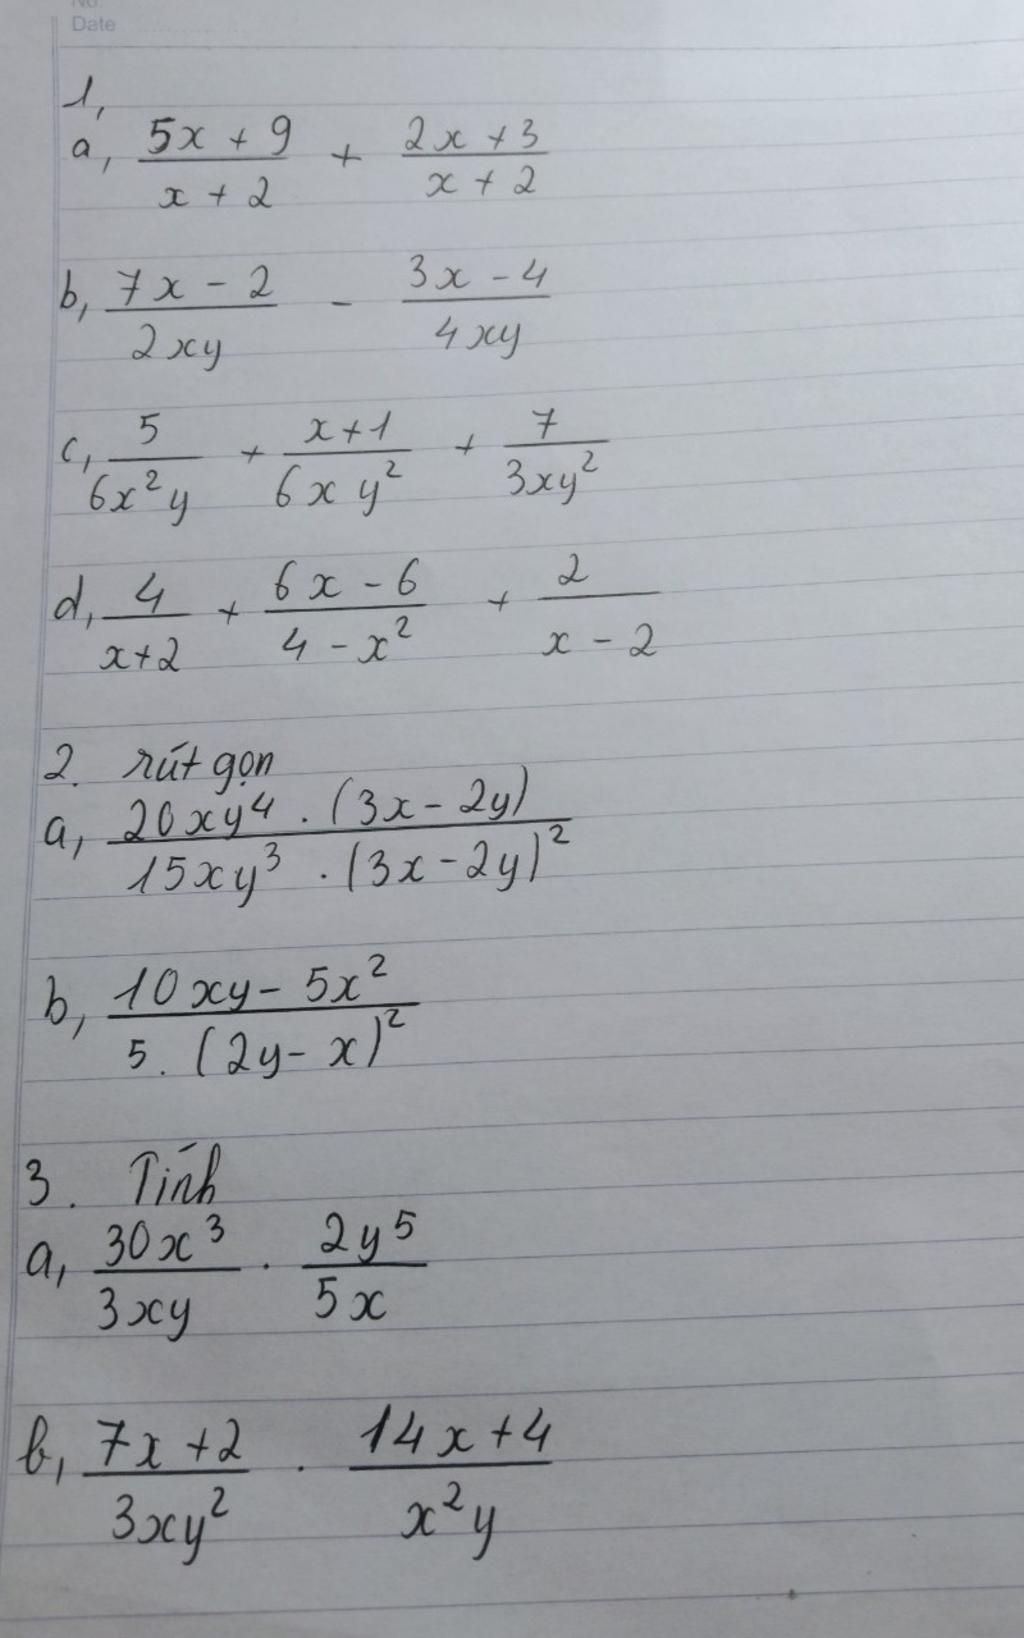 No.
Date
1,
a, (5x + 9)/(x + 2) + (2x + 3)/(x + 2)
b, (7x - 2)/(2xy) - (3x - 4)/(4xy)
c, 5/(6x²y) + (x+1)/(6xy²) + 7/(3xy²)
d, 4/(x+2) + (6x - 6)/(4 - x²) + 2/(x - 2)
2. rút gọn
a, (20xy⁴ . (3x - 2y))/(15xy³ . (3x - 2y)²)
b, (10xy - 5x²)/(5. (2y - x)²)
3. Tính
a, (30x³)/(3xy) . (2y⁵)/(5x)
b, (7x + 2)/(3xy²) . (14x + 4)/(x²y)